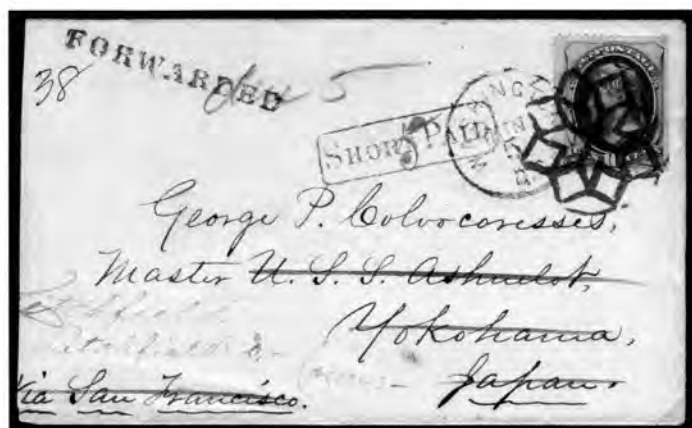 FORWARDED
38 Due 5
SHORT PAID
George P. Colvocoresses,
Master U. S. S. Ashuelot,
Yokohama,
Japan.
Litchfield
Via San Francisco.